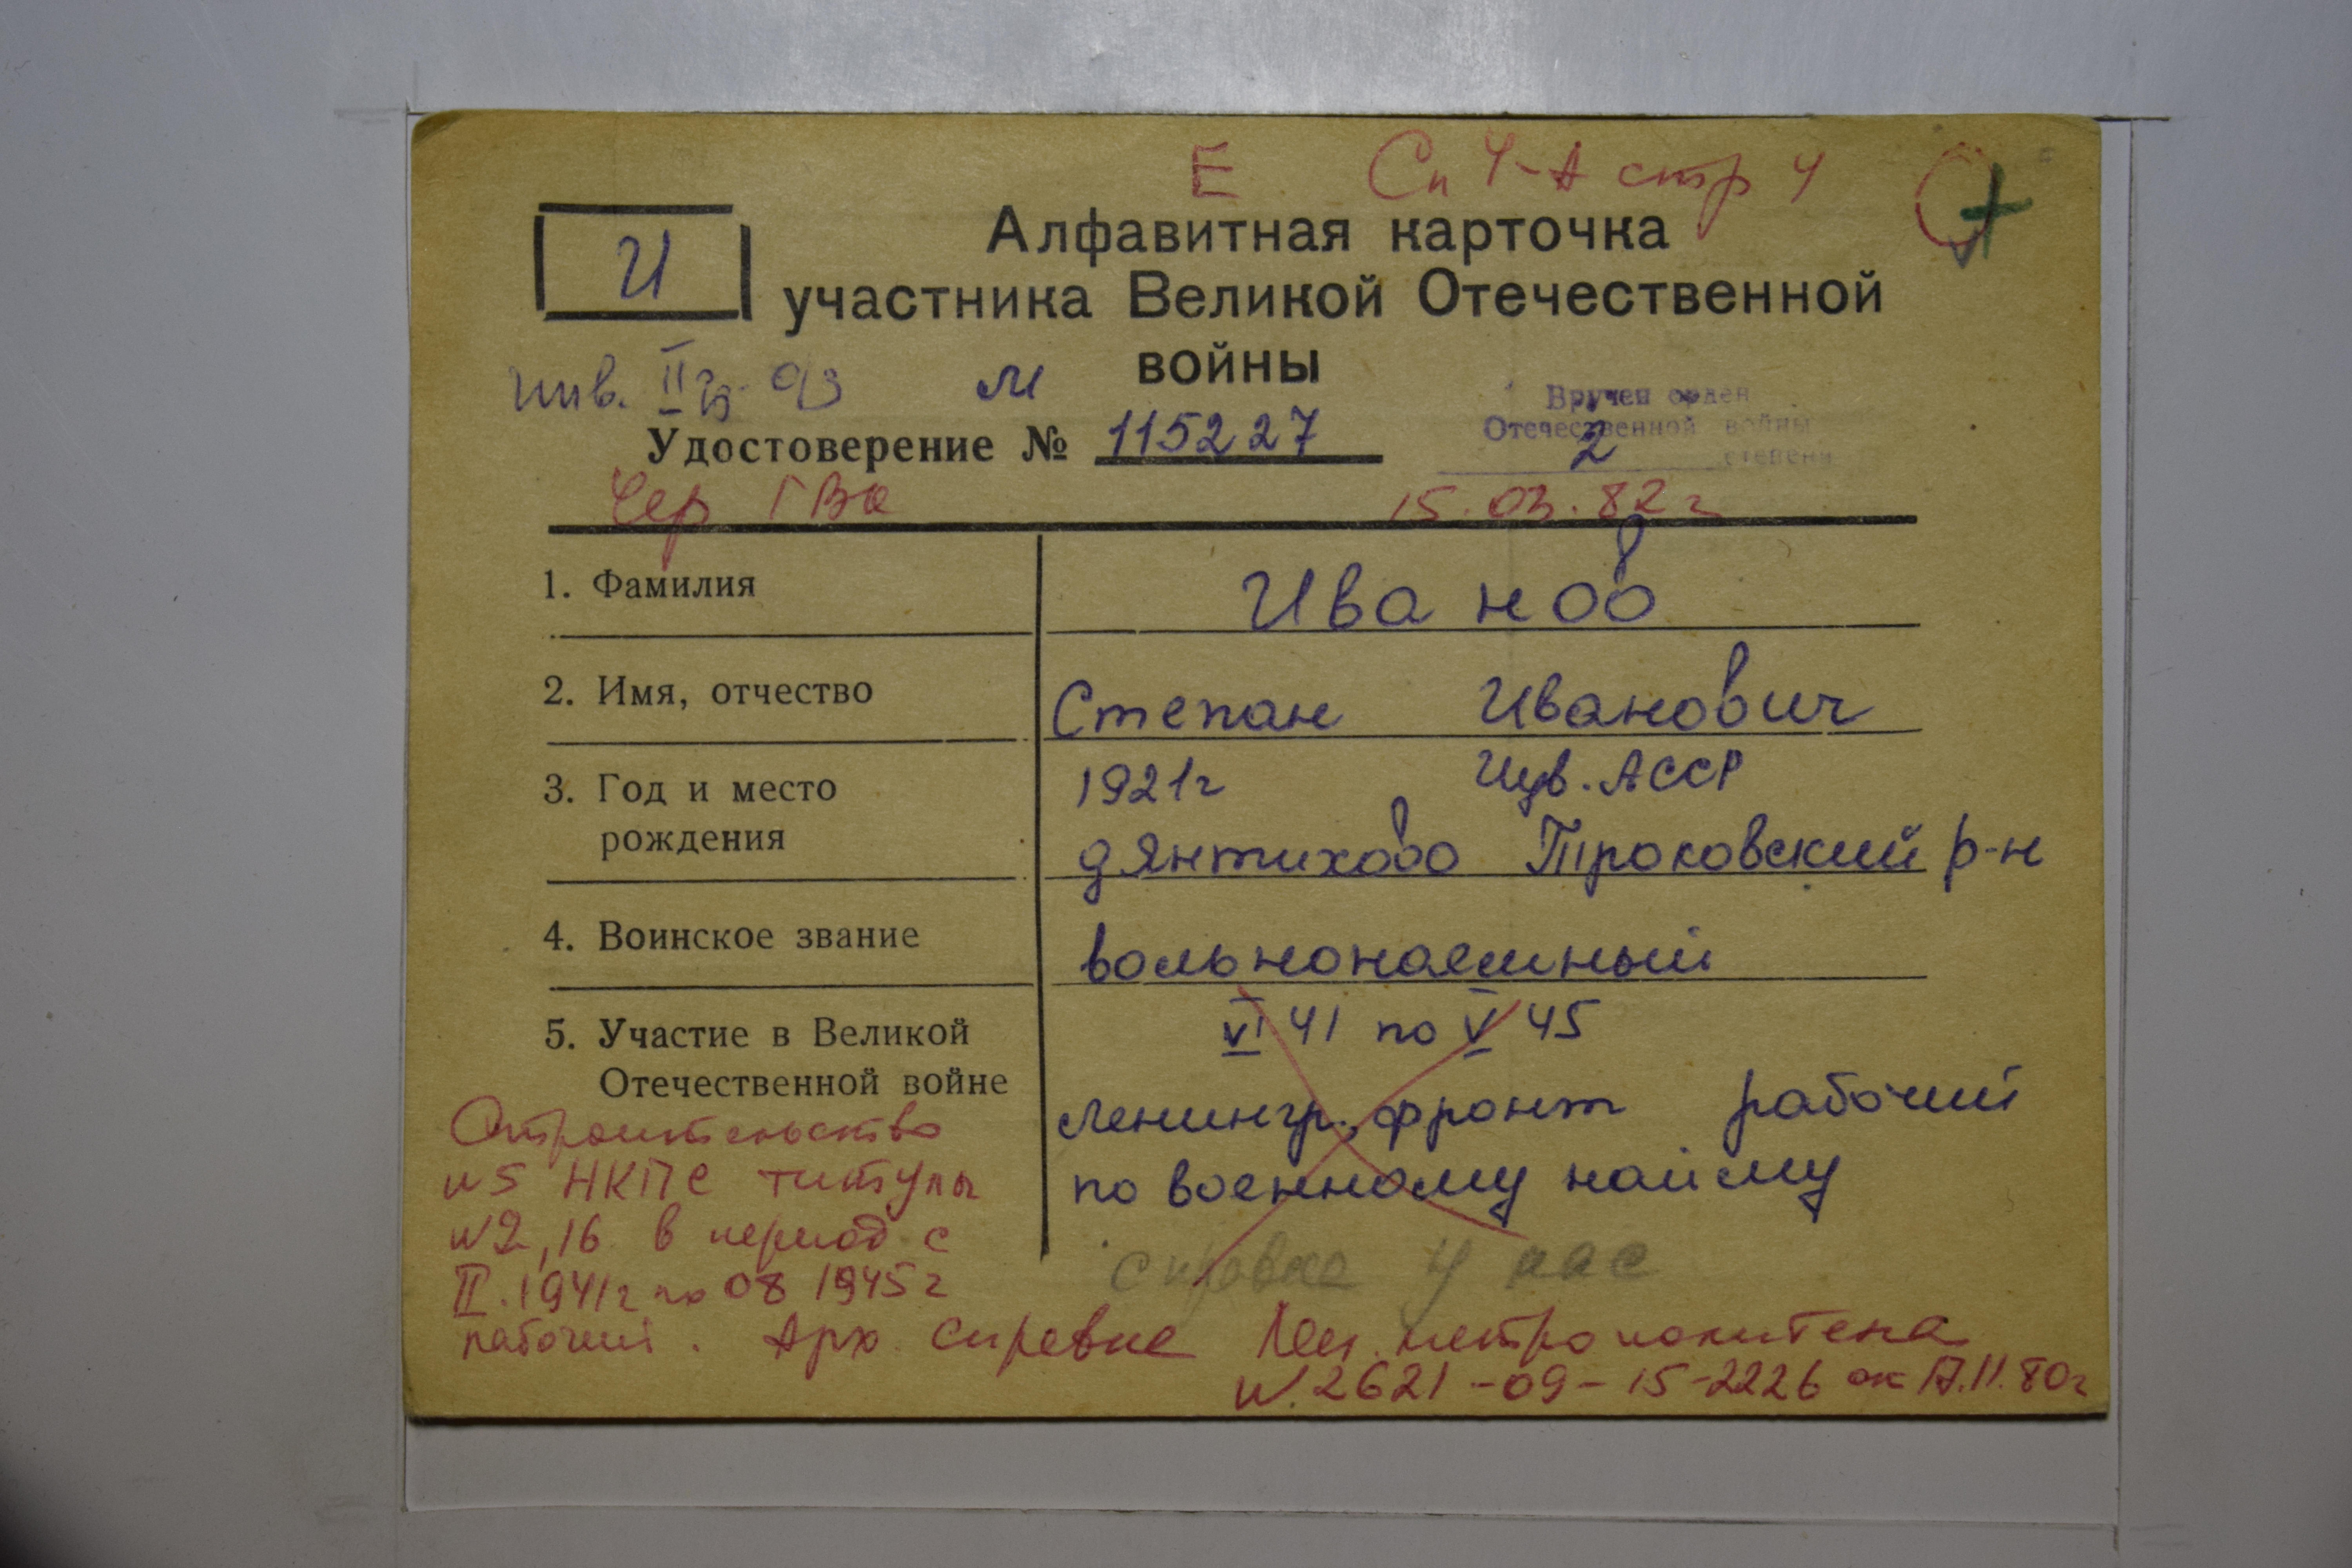 Е Сп 4-А стр 4
И
Алфавитная карточка
участника Великой Отечественной
войны
инв. II гр. м
Вручен орден
Отечественной войны
2 степени
Удостоверение № 115227
15.03.82 г
1. Фамилия Иванов
2. Имя, отчество Степан Иванович
3. Год и место рождения 1921г Чув. АССР
д Янтихово Траковский р-н
4. Воинское звание вольнонаемный
5. Участие в Великой Отечественной войне VI 41 по V 45
Ленингр. фронт рабочий
по военному найму
справка у нас
Строительство
№5 НКПС титулы
№2, 16 в период с
II.1941г по 08 1945г
рабочий. Арх справка Лен. метрополитена
№ 2621-09-15-2226 от 17.11.80г